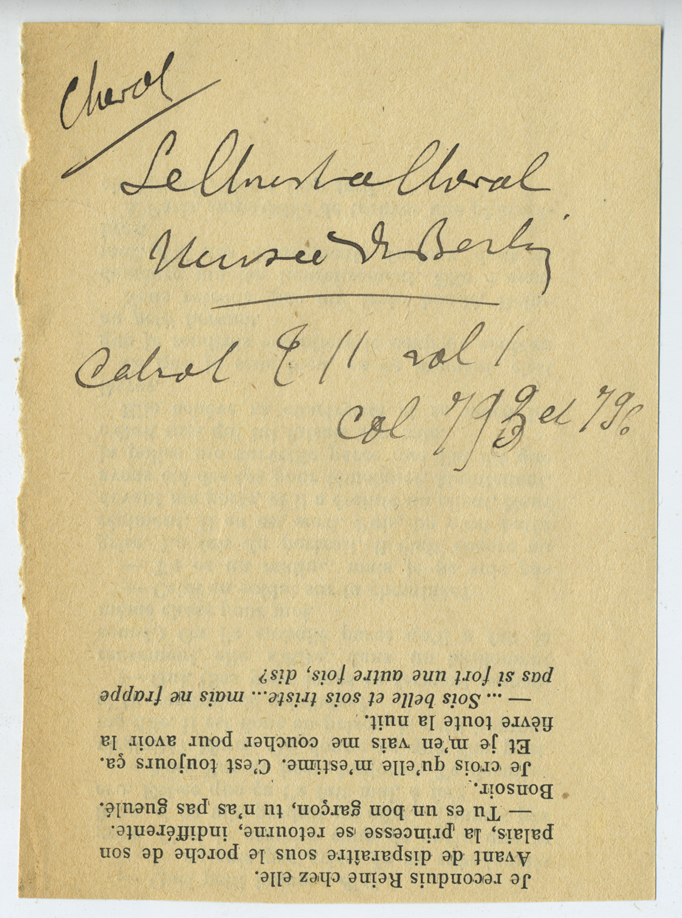 Cheval
Le Christ a Cheval
Musée de Berlin
Cabrol T 11 vol 1
col et
Je reconduis Reine chez elle.
Avant de disparaître sous le porche de son
palais, la princesse se retourne, indifférente.
— Tu es un bon garçon, tu n'as pas gueulé.
Bonsoir.
Je crois qu'elle m'estime. C'est toujours ça.
Et je m'en vais me coucher pour avoir la
fièvre toute la nuit.
— ... Sois belle et sois triste... mais ne frappe
pas si fort une autre fois, dis?